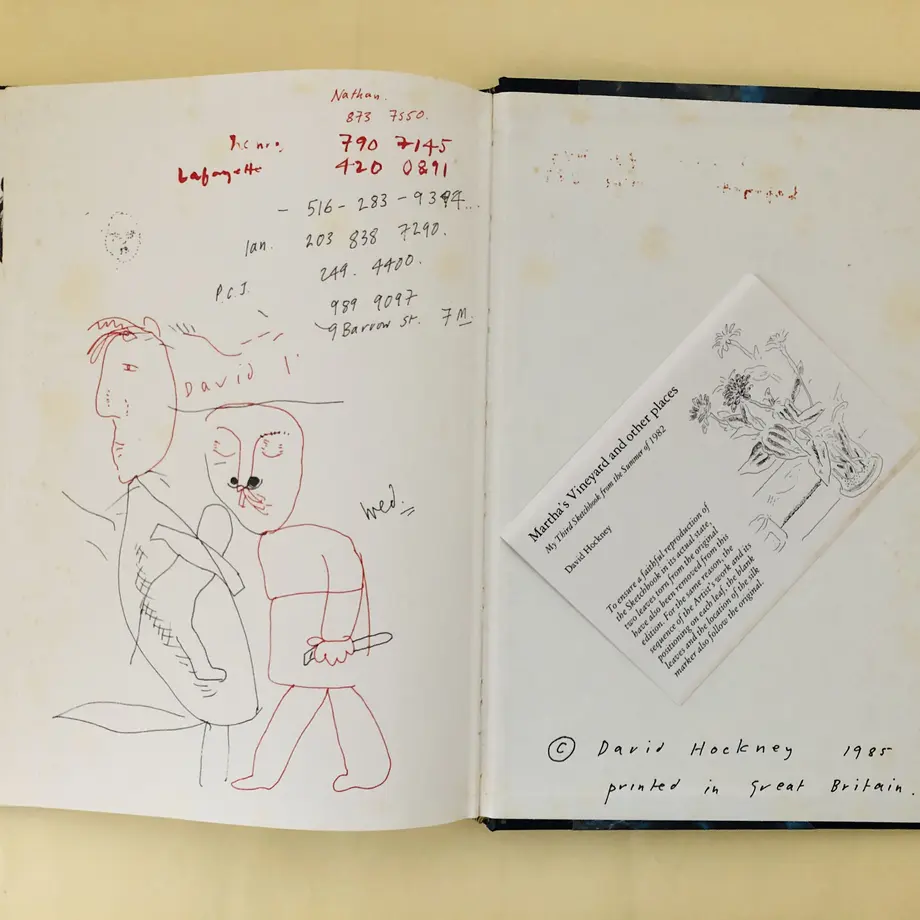 Nathan.
873 7550.
790 7145
Lafayette 420 0891
- 516-283-9394...
Ian. 203 838 7290.
249. 4400.
P.C.I.
989 9097
9 Barrow St. 7M.
David
Wed.
Martha's Vineyard and other places
My Third Sketchbook from the Summer of 1982
David Hockney
To ensure a faithful reproduction of
the Sketchbook in its actual state,
two leaves torn from the original
have also been removed from this
edition. For the same reason, the
sequence of the Artist's work and its
positioning on each leaf, the blank
leaves and the location of the silk
marker also follow the original.
© David Hockney 1985
printed in Great Britain.